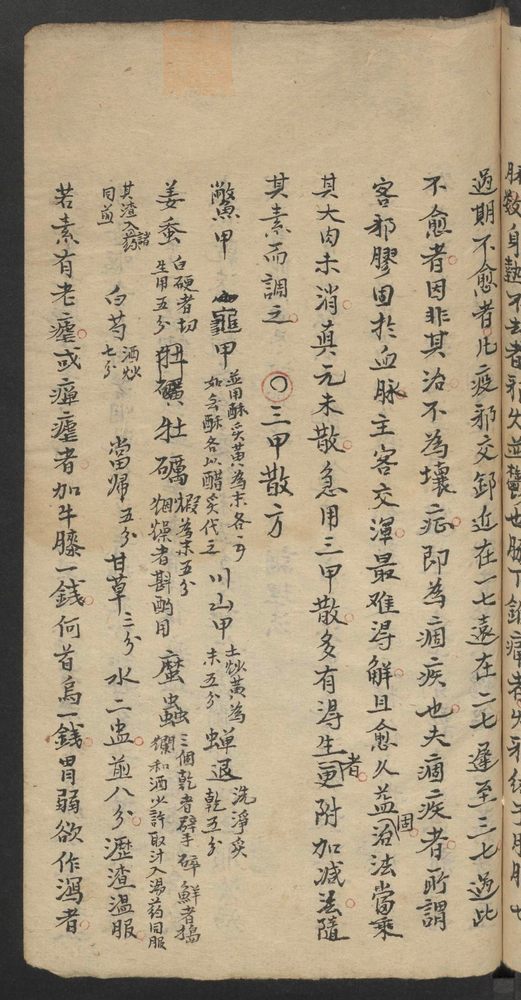 過期不愈者凡疫邪交卸近在一七遠在二七遲至三七過此
不愈者因非其治不為壞症即為痼疾也夫痼疾者所謂
客邪膠固於血脉主客交渾最难淂觧且愈久益固治法當乘
其大肉未消真元未散急用三甲散多有淂生者更附加减法隨
其素而調之 〇三甲散方
鱉甲 龜甲 並用酥炙黄為末各一千 如無酥各以醋炙代之 川山甲 土炒黄為末五分 蝉退 洗淨炙乾五分
姜蚕 白硬者切生用五分 牡礪 煅為末五分 咽燥者斟酌用 䗪蟲 三個乾者擘碎 鮮者搗爛和酒少許取汁入湯药同服
其渣入諸药同煎 白芍 酒炒七分 當歸五分 甘草三分 水二盅煎八分瀝渣温服
若素有老瘧或瘅瘧者加牛膝一錢何首烏一錢胃弱欲作瀉者